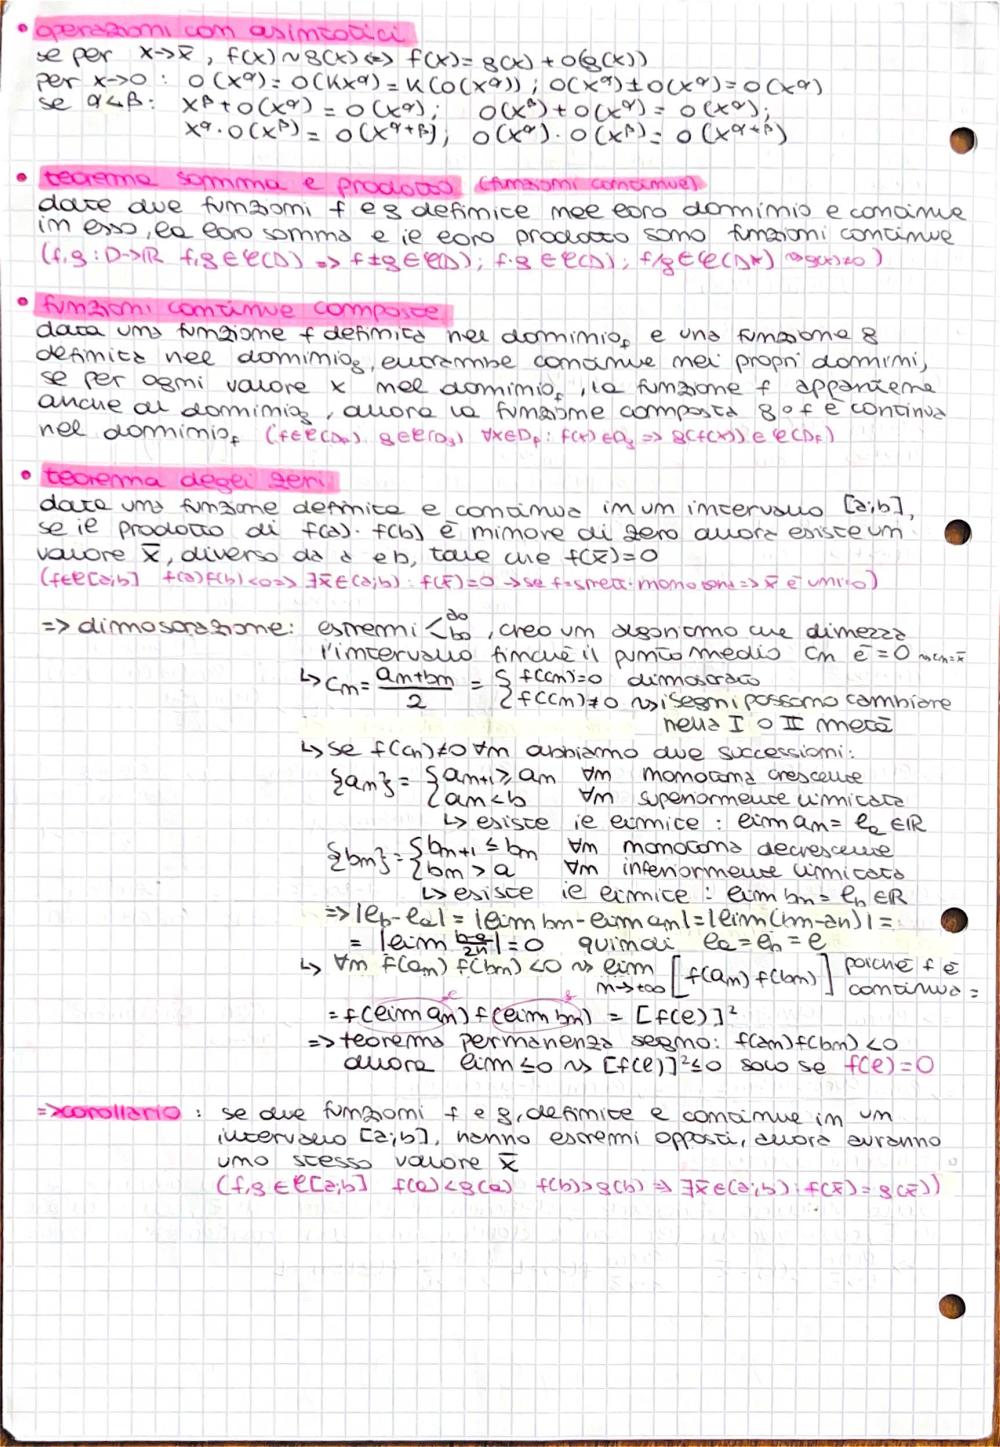 • operazioni con asintotici
se per x→x̄, f(x)~g(x) <=> f(x)=g(x)+o(g(x))
per x→0: o(x^α)=o(Kx^α)=K(o(x^α)); o(x^α)±o(x^α)=o(x^α)
se α<β: x^β+o(x^α)=o(x^α); o(x^β)+o(x^α)=o(x^α);
x^α·o(x^β)=o(x^(α+β)); o(x^α)·o(x^β)=o(x^(α+β))
• teorema somma e prodotto (funzioni continue)
date due funzioni f e g definite nel loro dominio e continue
in esso, la loro somma e il loro prodotto sono funzioni continue
(f,g:D->ℝ f,g∈C(D) => f±g∈C(D); f·g∈C(D); f/g∈C(D*) ⇝g(x)≠0)
• funzioni continue composte
data una funzione f definita nel dominio_f e una funzione g
definita nel dominio_g, entrambe continue nei propri domini,
se per ogni valore x nel dominio_f, la funzione f appartiene
anche al dominio_g, allora la funzione composta g∘f è continua
nel dominio_f (f∈C(D_f), g∈C(D_g) ∀x∈D_f: f(x)∈D_g => g(f(x))∈C(D_f)
• teorema degli zeri
data una funzione definita e continua in un intervallo [a;b],
se il prodotto di f(a)·f(b) è minore di zero allora esiste un
valore x̄, diverso da a e b, tale che f(x̄)=0
(f∈C[a;b] f(a)f(b)<0 => ∃x̄∈(a;b): f(x̄)=0 →se f=strett. monotona => x̄ è unico)
=> dimostrazione: estremi < a₀ b₀, creo un algoritmo che dimezza
l'intervallo finché il punto medio cn è =0 ⇝cn=x̄
↳ cn = (an+bn)/2 = { f(cn)=0 dimostrato
{ f(cn)≠0 ⇝ i segni possono cambiare
nella I o II metà
↳ se f(cn)≠0 ∀n abbiamo due successioni:
{an} = { an+1 ≥ an ∀n monotona crescente
{ an<b ∀n superiormente limitata
↳ esiste il limite: lim an = ℓa ∈ℝ
{bn} = { bn+1 ≤ bn ∀n monotona decrescente
{ bn > a ∀n inferiormente limitata
↳ esiste il limite: lim bn = ℓb ∈ℝ
=> |ℓb-ℓa| = |lim bn - lim an| = |lim(bn-an)| =
= |lim (b-a)/2n| = 0 quindi ℓa = ℓb = ℓ
↳ ∀n f(an) f(bn) <0 ⇝ lim n→+∞ [f(an) f(bn)] poiché f è continua =
= f(lim an) f(lim bn) = [f(ℓ)]²
=> teorema permanenza segno: f(an)f(bn)<0
allora lim ≤0 ⇝ [f(ℓ)]²≤0 solo se f(ℓ)=0
=>corollario: se due funzioni f e g, definite e continue in un
intervallo [a;b], hanno estremi opposti, allora avranno
uno stesso valore x̄
(f,g∈C[a;b] f(a)<g(a) f(b)>g(b) => ∃x̄∈(a;b): f(x̄)=g(x̄))